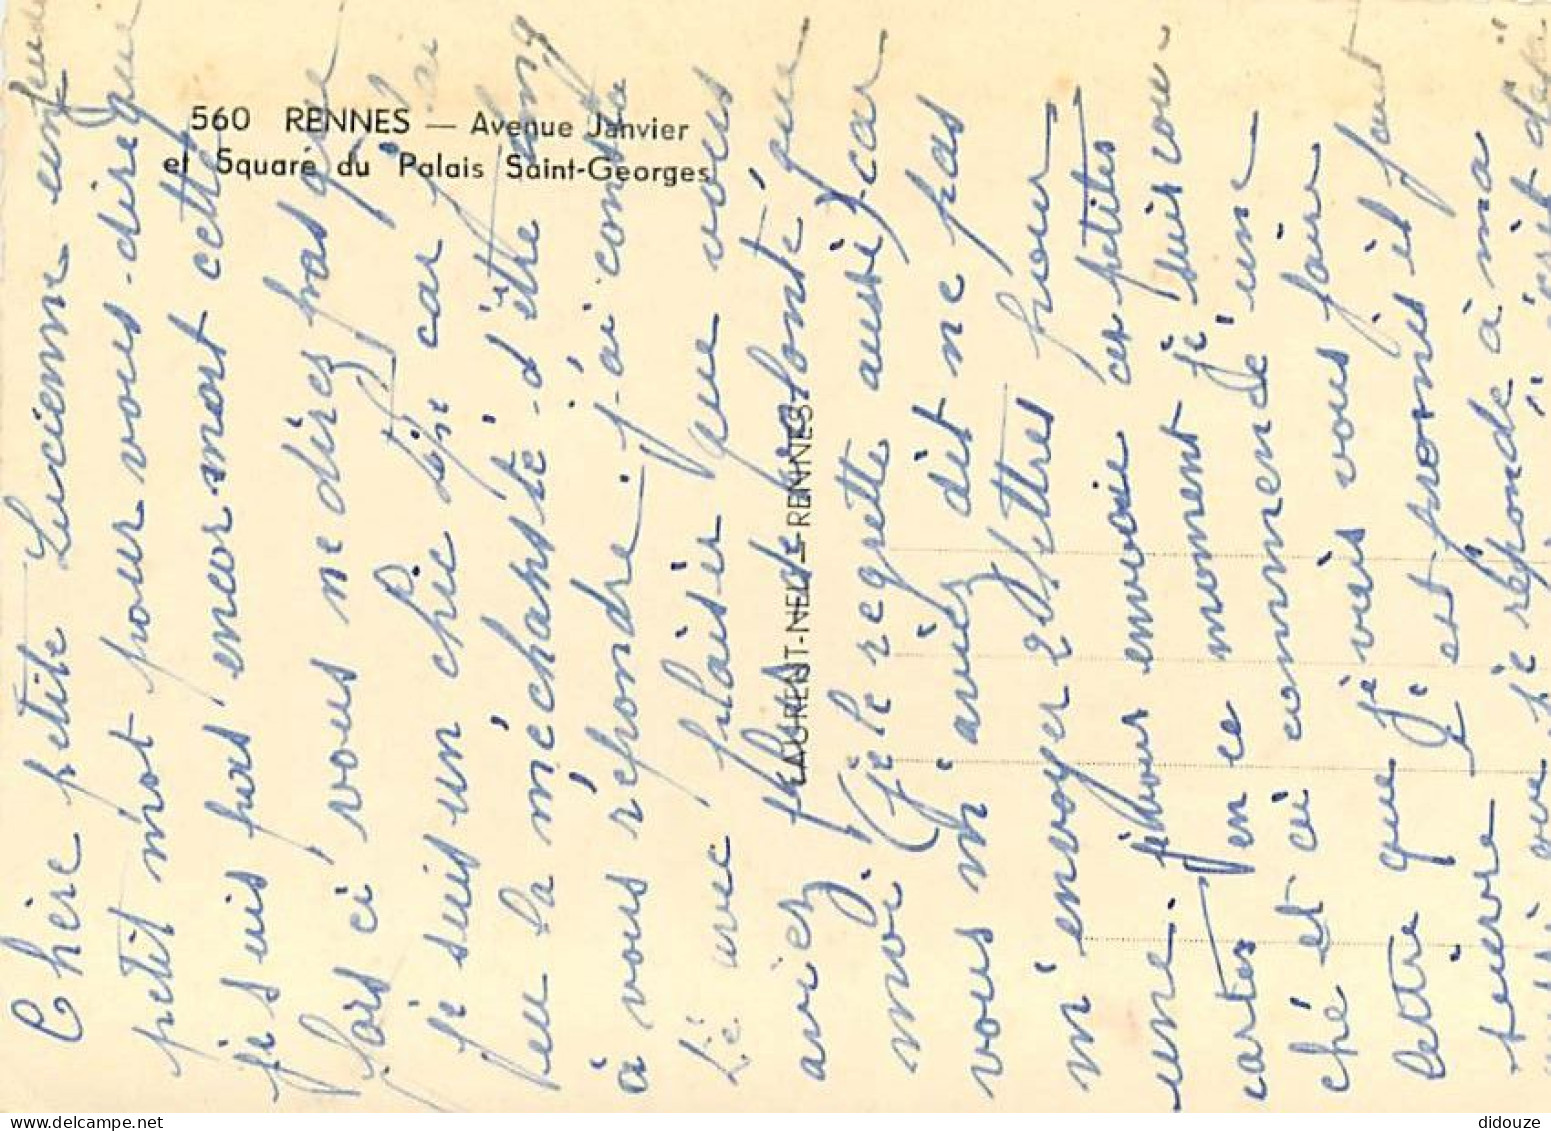 560 RENNES — Avenue Janvier
et Square du Palais Saint-Georges
LAURENT-NEL — RENNES
Chère petite Lucienne un
petit mot pour vous dire que
je suis pas encor mort cette
fois ci vous me dires pas que
je suis un chic type car j'ai
eu la méchansté d'être long
à vous répondre. j'ai consta
té avec plaisir que vous
aviez plus de volonté que
moi (je le regrette aussi) car
vous m'aviez dit ne pas
m'envoyer 2 lettres pour
une. je vour envoie ces petites
cartes en ce moment je suis cou-
ché et ai commencé une
lettre que je vais vous faire
suivre je est promis il faut
que je réponde à ma
didouze